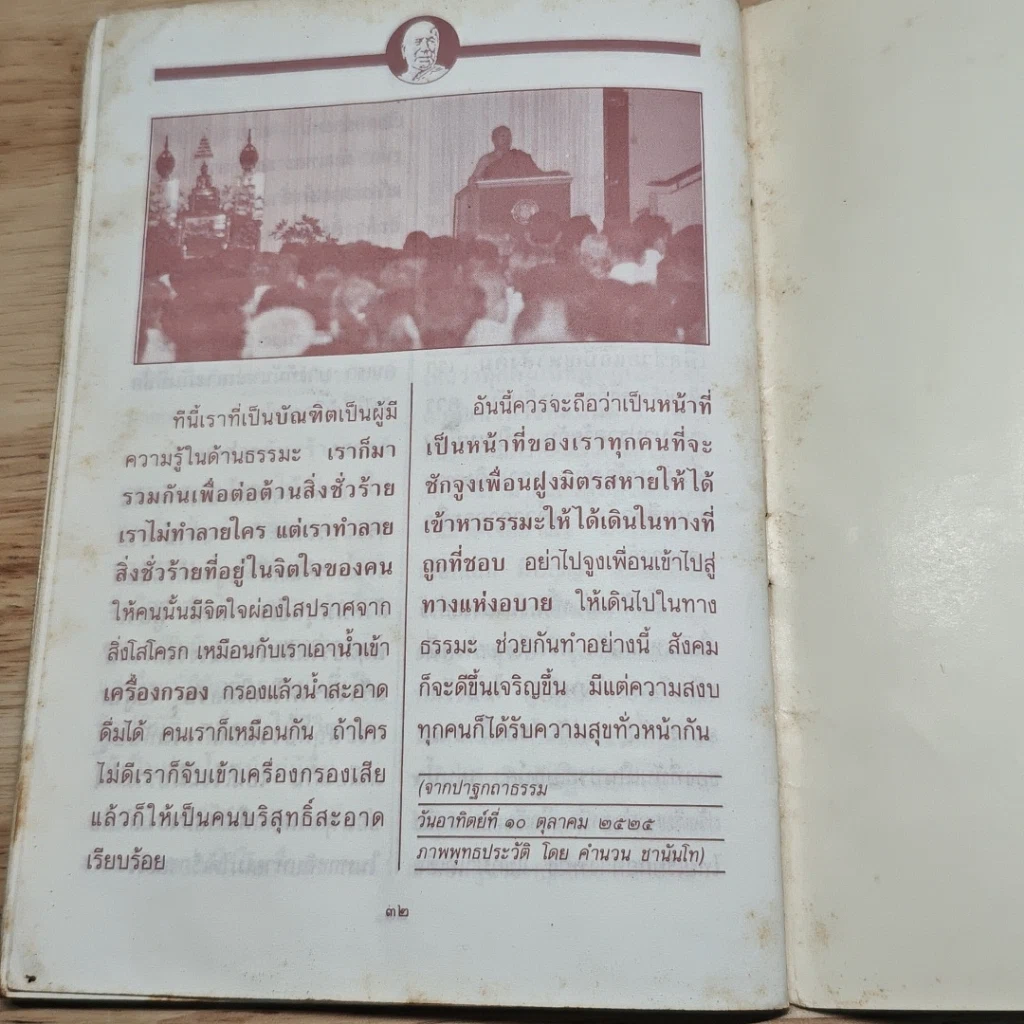 ทีนี้เราที่เป็นบัณฑิตเป็นผู้มี
ความรู้ในด้านธรรมะ เราก็มา
รวมกันเพื่อต่อต้านสิ่งชั่วร้าย
เราไม่ทำลายใคร แต่เราทำลาย
สิ่งชั่วร้ายที่อยู่ในจิตใจของคน
ให้คนนั้นมีจิตใจผ่องใสปราศจาก
สิ่งโสโครก เหมือนกับเราเอาน้ำเข้า
เครื่องกรอง กรองแล้วน้ำสะอาด
ดื่มได้ คนเราก็เหมือนกัน ถ้าใคร
ไม่ดีเราก็จับเข้าเครื่องกรองเสีย
แล้วก็ให้เป็นคนบริสุทธิ์สะอาด
เรียบร้อย
อันนี้ควรจะถือว่าเป็นหน้าที่
เป็นหน้าที่ของเราทุกคนที่จะ
ชักจูงเพื่อนฝูงมิตรสหายให้ได้
เข้าหาธรรมะให้ได้เดินในทางที่
ถูกที่ชอบ อย่าไปจูงเพื่อนเข้าไปสู่
ทางแห่งอบาย ให้เดินไปในทาง
ธรรมะ ช่วยกันทำอย่างนี้ สังคม
ก็จะดีขึ้นเจริญขึ้น มีแต่ความสงบ
ทุกคนก็ได้รับความสุขทั่วหน้ากัน
(จากปาฐกถาธรรม
วันอาทิตย์ที่ ๑๐ ตุลาคม ๒๕๒๕
ภาพพุทธประวัติ โดย คำนวน ชานันโท)
๓๒